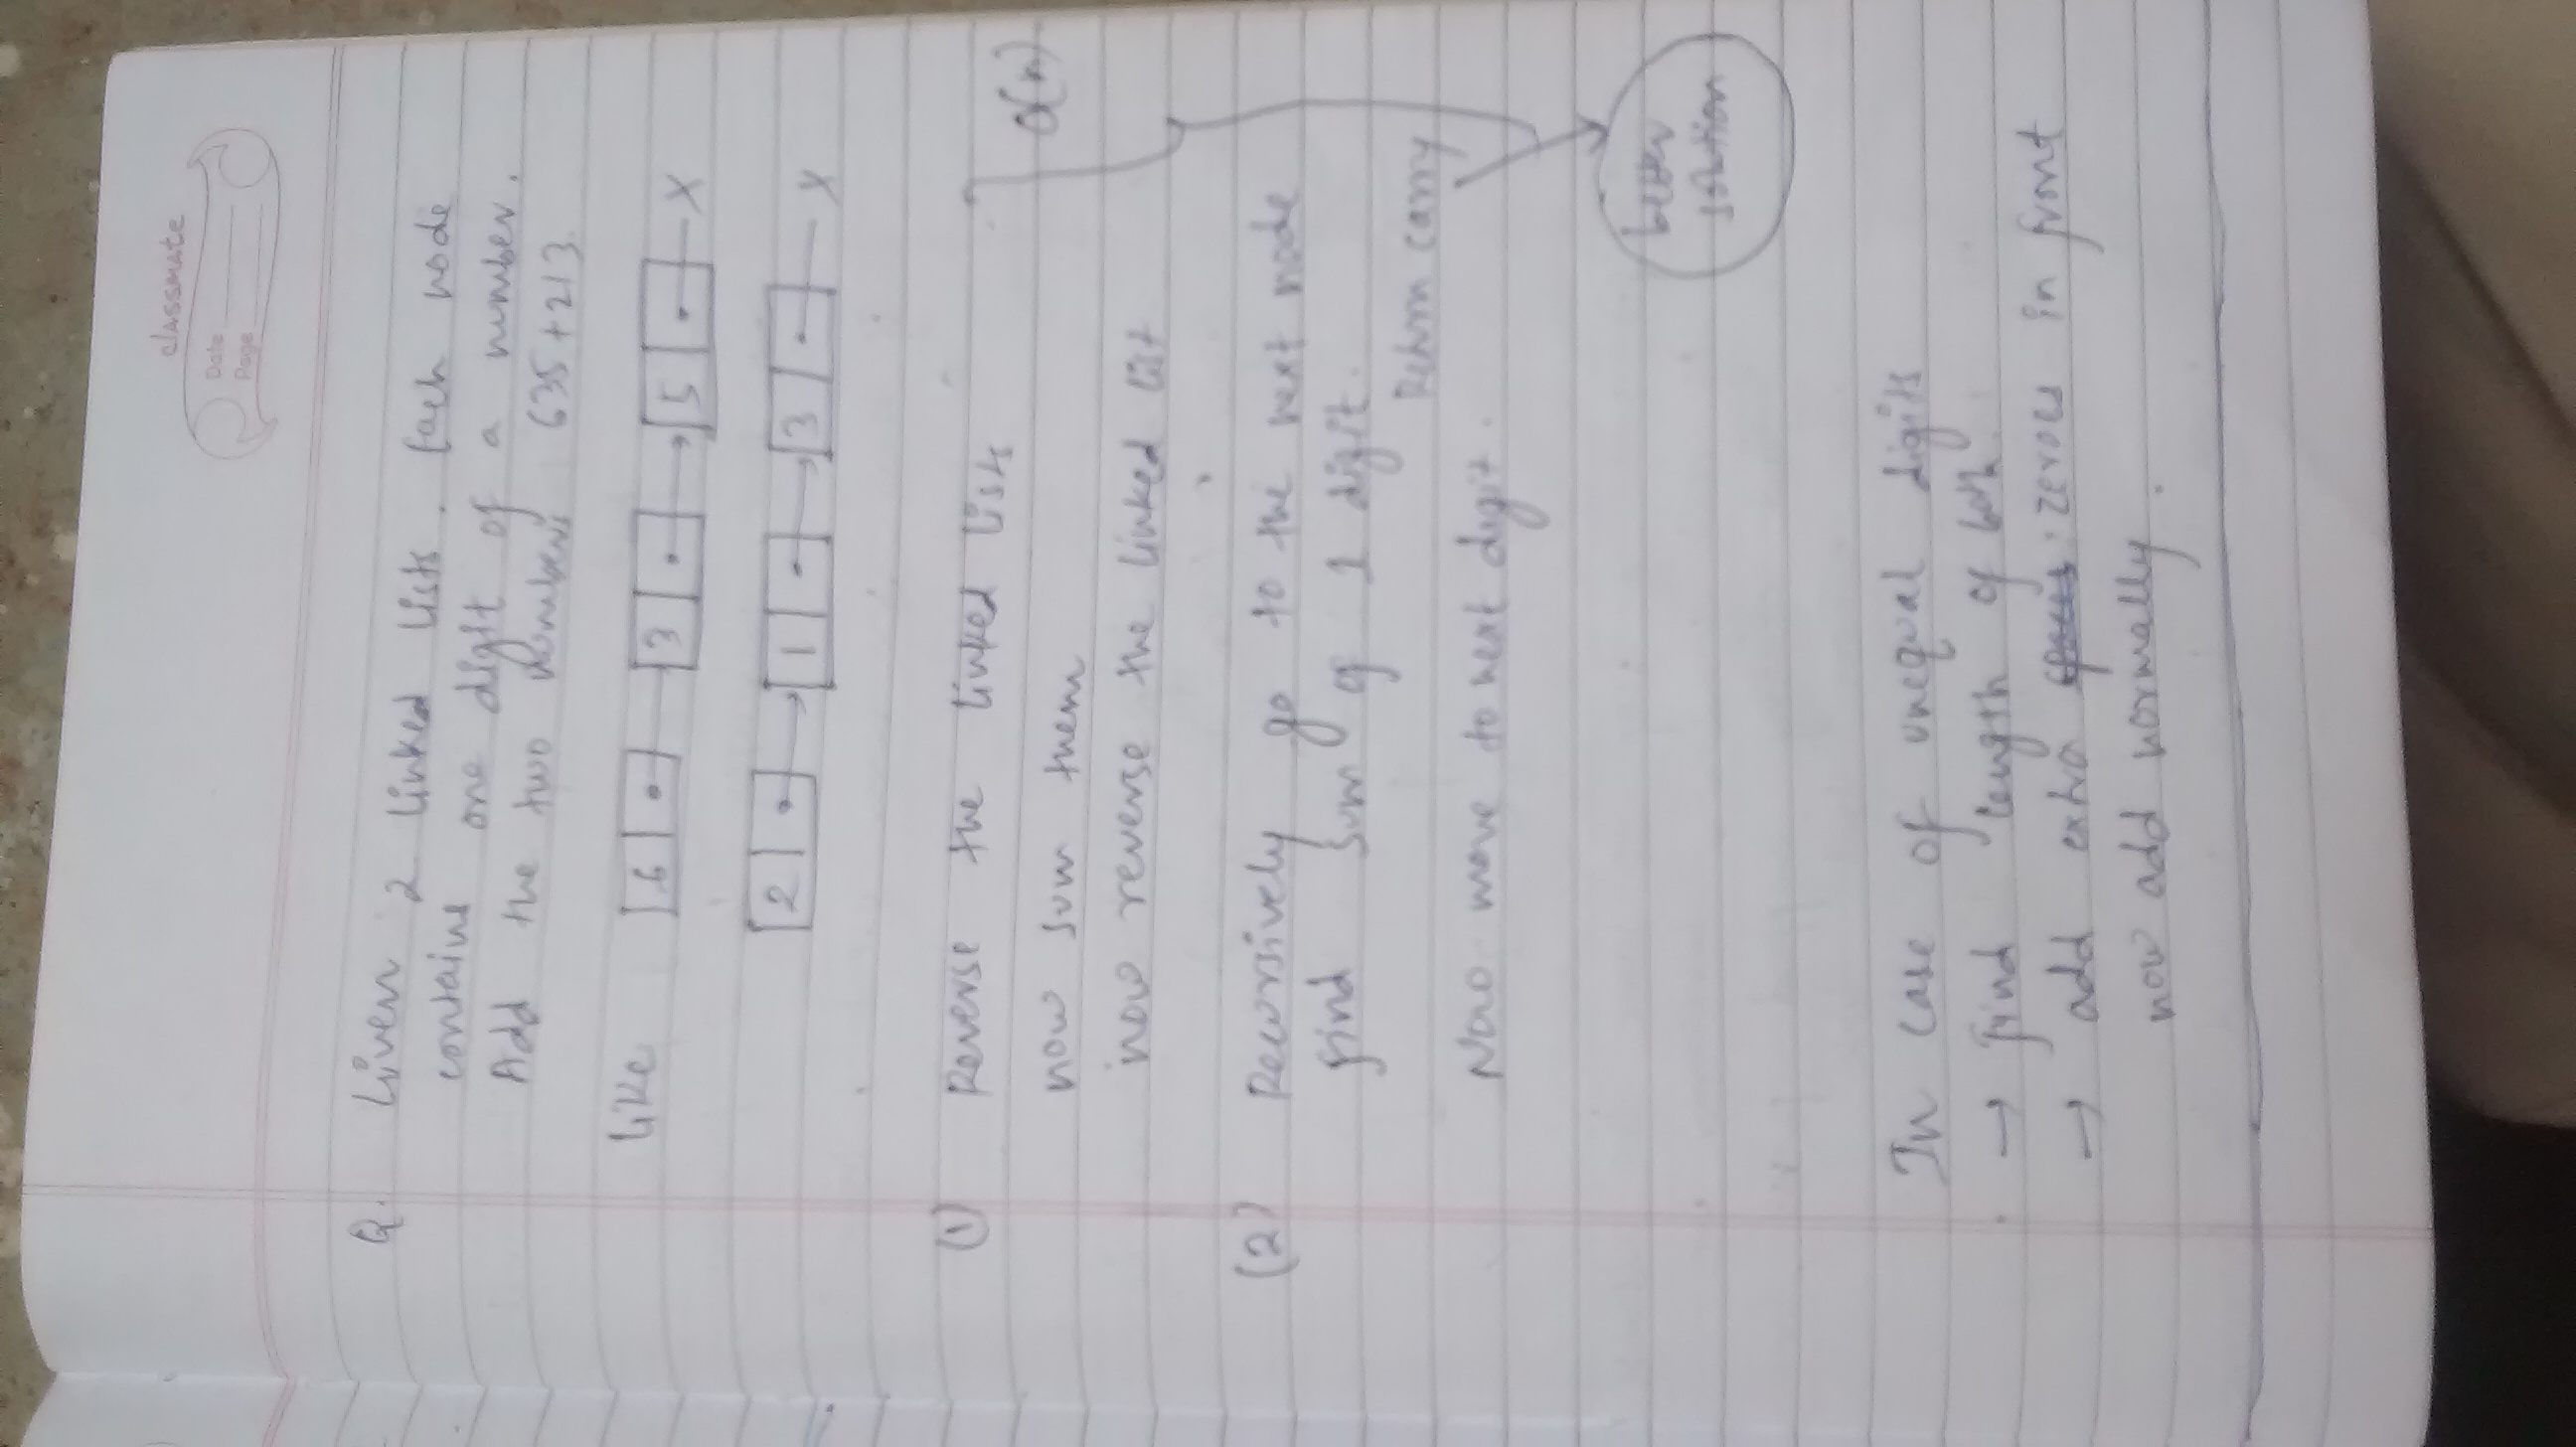 classmate
Date
Page
Q. Given 2 linked lists. Each node
contains one digit of a number.
Add the two numbers 635+213.
Like 6 3 5 X
2 1 3 X
(1) Reverse the linked lists
now sum them O(n)
now reverse the linked list
(2) Recursively go to the next node
find sum of 1 digit.
Return carry
Now move to next digit.
better
solution
In case of unequal digits
→ find length of both.
→ add extra zeroes in front
now add normally.